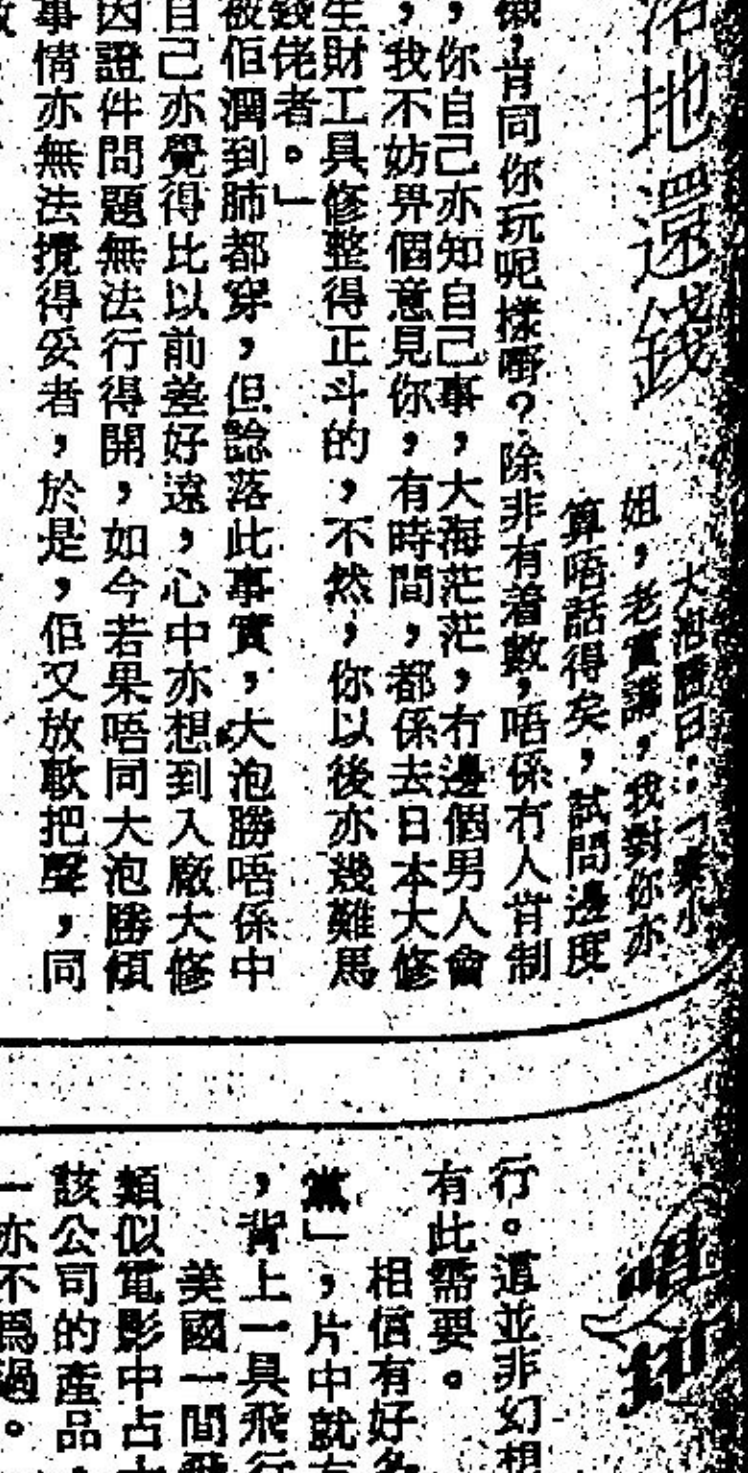 落地還錢
大泡勝曰：「小
姐，老實講，我對你亦
算唔話得矣，試問邊度
肯同你玩呢樣嘢？除非有着數，唔係冇人肯制
，你自己亦知自己事，大海茫茫，冇邊個男人會
，我不妨畀個意見你，有時間，都係去日本大修
生財工具修整得正斗的，不然，你以後亦幾難馬
錢佬者。」
被佢潤到肺都穿，但諗落此事實，大泡勝唔係中
自己亦覺得比以前差好遠，心中亦想到入廠大修
因證件問題無法行得開，如今若果唔同大泡勝傾
事情亦無法攪得妥者，於是，佢又放軟把聲，同
行。這並非幻想
有此需要。
相信有好多
黨」，片中就有
，背上一具飛行
美國一間飛
類似電影中占士
該公司的產品，
一亦不爲過。